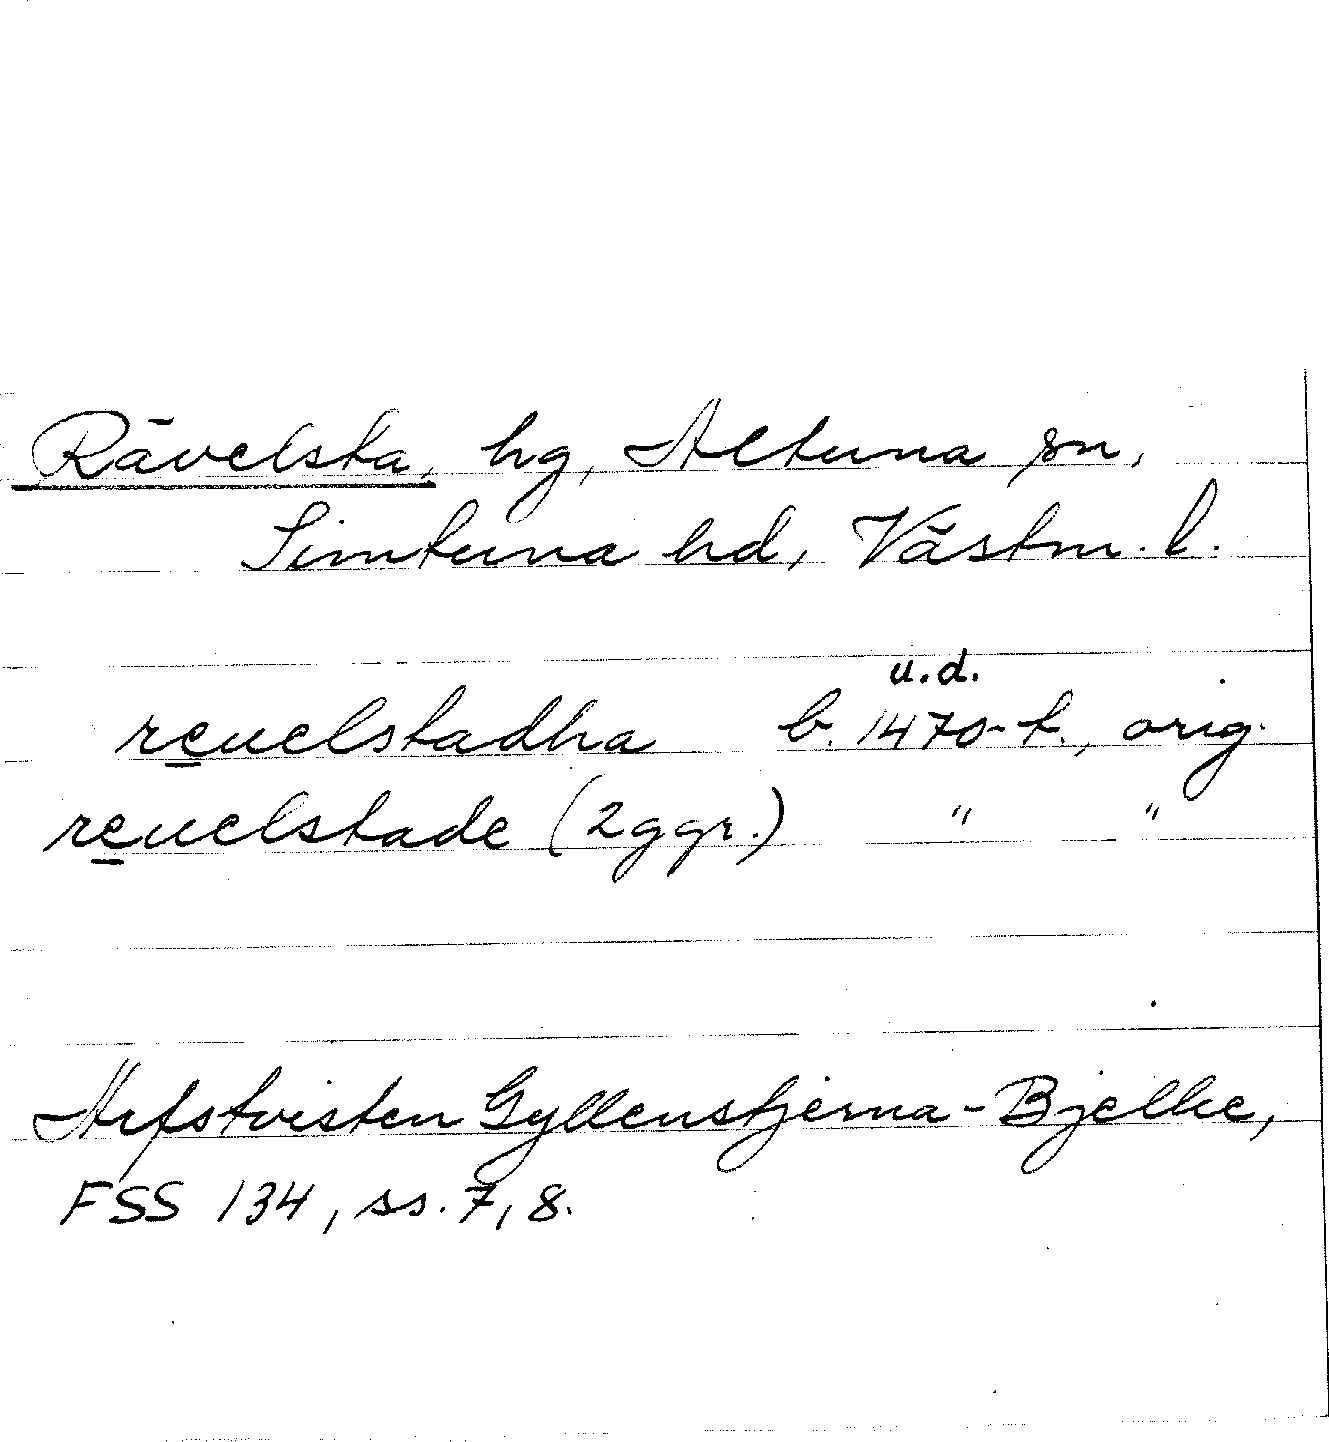 Rävelsta, hg, Altuna sn,
Simtuna hd, Västm. l.
u.d.
reuelstadha b. 1470-t., orig.
reuelstade (2 ggr.) " "
Arfstvisten Gyllenstjerna-Bjelke,
FSS 134, ss. 7, 8.